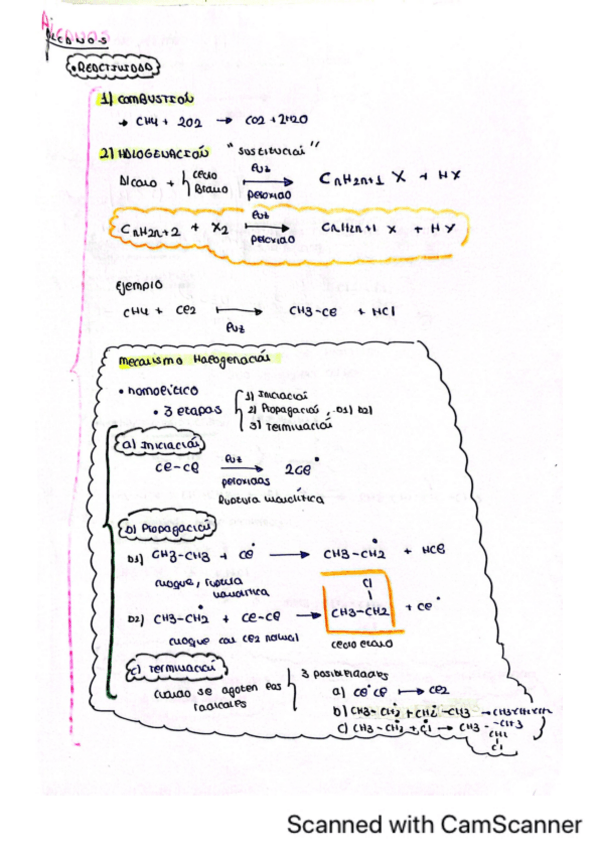 Alcanos
ALCANOS
• REACTIVIDAD
1) COMBUSTIÓN
→ CH4 + 2O2 → CO2 + 2H2O
2) HALOGENACIÓN "sustitución"
Alcano + { cloro / Bromo luz → peróxido CnH2n+1 X + HX
CnH2n+2 + X2 luz → peróxido CnH2n+1 X + HX
Ejemplo
CH4 + Cl2 → luz CH3-Cl + HCl
mecanismo Halogenación
• homolítico
• 3 etapas { 1) Iniciación
2) Propagación, b1) b2)
3) Terminación
a) Iniciación
Cl-Cl luz → peróxidos 2Cl•
Ruptura homolítica
b) Propagación
b1) CH3-CH3 + Cl• → CH3-ĊH2 + HCl
choque, ruptura
homolítica
b2) CH3-ĊH2 + Cl-Cl → CH3-CH2 + Cl•
Cl
choque con Cl2 normal
cloro etano
c) Terminación
cuando se agoten los
radicales
3 posibilidades
a) Cl• Cl• → Cl2
b) CH3-ĊH2 + ĊH2-CH3 →
c) CH3-ĊH2 + Ċl →
Cl
Scanned with CamScanner